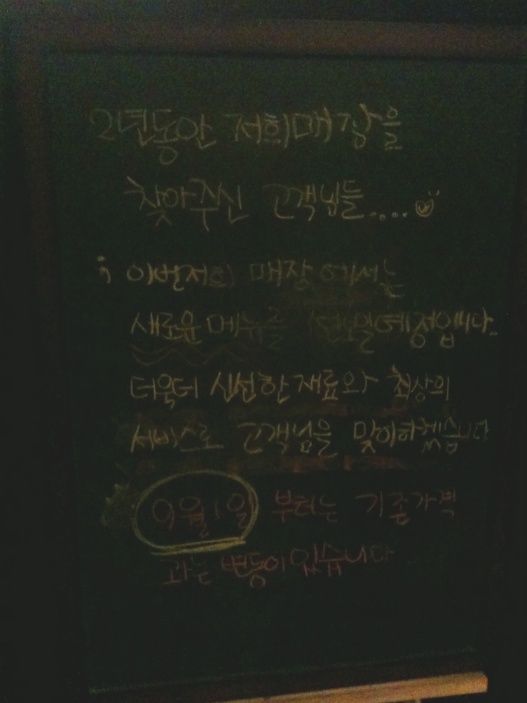 2년동안 저희매장을
찾아주신 고객님들....
이번저희 매장에서는
새로운메뉴를 선보일예정입니다..
더욱더 신선한재료와 최상의
서비스로 고객님을 맞이하겠습니다
9월1일 부터는 기존가격
과는 변동이있습니다